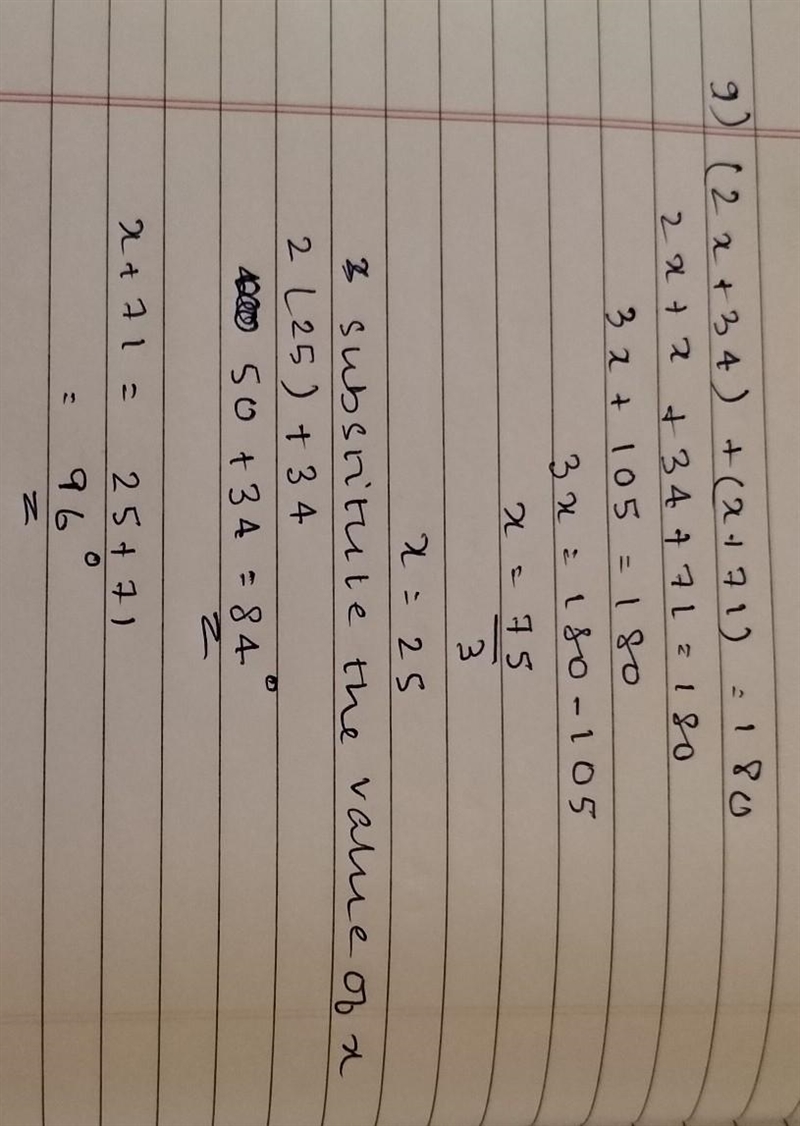 9) (2x+34) + (x+71) = 180
2x+x +34+71=180
3x+105=180
3x=180-105
x = 75/3
x = 25
subsritute the value of x
2(25)+34
50+34=84°
x+71= 25+71
= 96°